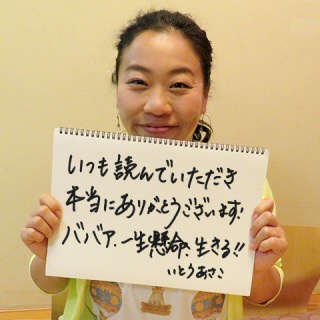 いつも読んでいただき
本当にありがとうございます.
ババア、一生懸命、生きる!!
いとうあさこ